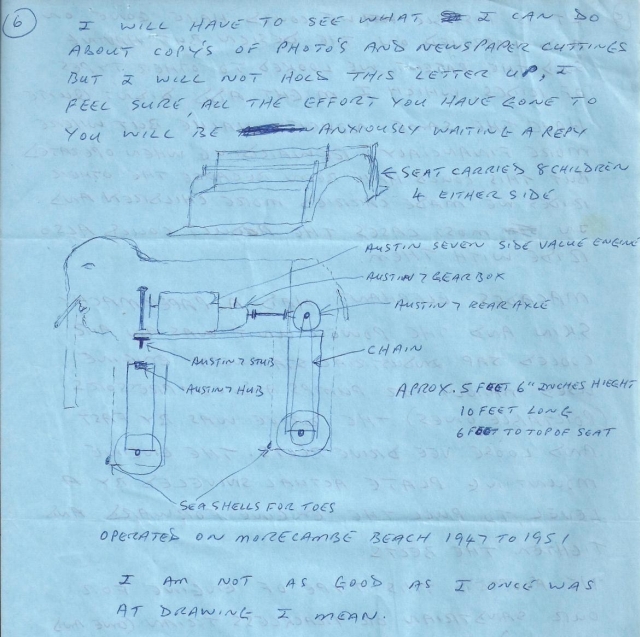 6
I WILL HAVE TO SEE WHAT I CAN DO
ABOUT COPY'S OF PHOTO'S AND NEWSPAPER CUTTINGS
BUT I WILL NOT HOLD THIS LETTER UP, I
FEEL SURE, ALL THE EFFORT YOU HAVE GONE TO
YOU WILL BE ANXIOUSLY WAITING A REPY
SEAT CARRIED 8 CHILDREN
4 EITHER SIDE
AUSTIN SEVEN SIDE VALUE ENGINE
AUSTIN 7 GEARBOX
AUSTIN 7 REAR AXLE
CHAIN
AUSTIN 7 STUB
AUSTIN 7 HUB
APROX. 5 FEET 6" INCHES HIEGHT
10 FEET LONG
6 FEET TO TOP OF SEAT
SEA SHELLS FOR TOES
OPERATED ON MORECAMBE BEACH 1947 TO 1951
I AM NOT AS GOOD AS I ONCE WAS
AT DRAWING I MEAN.